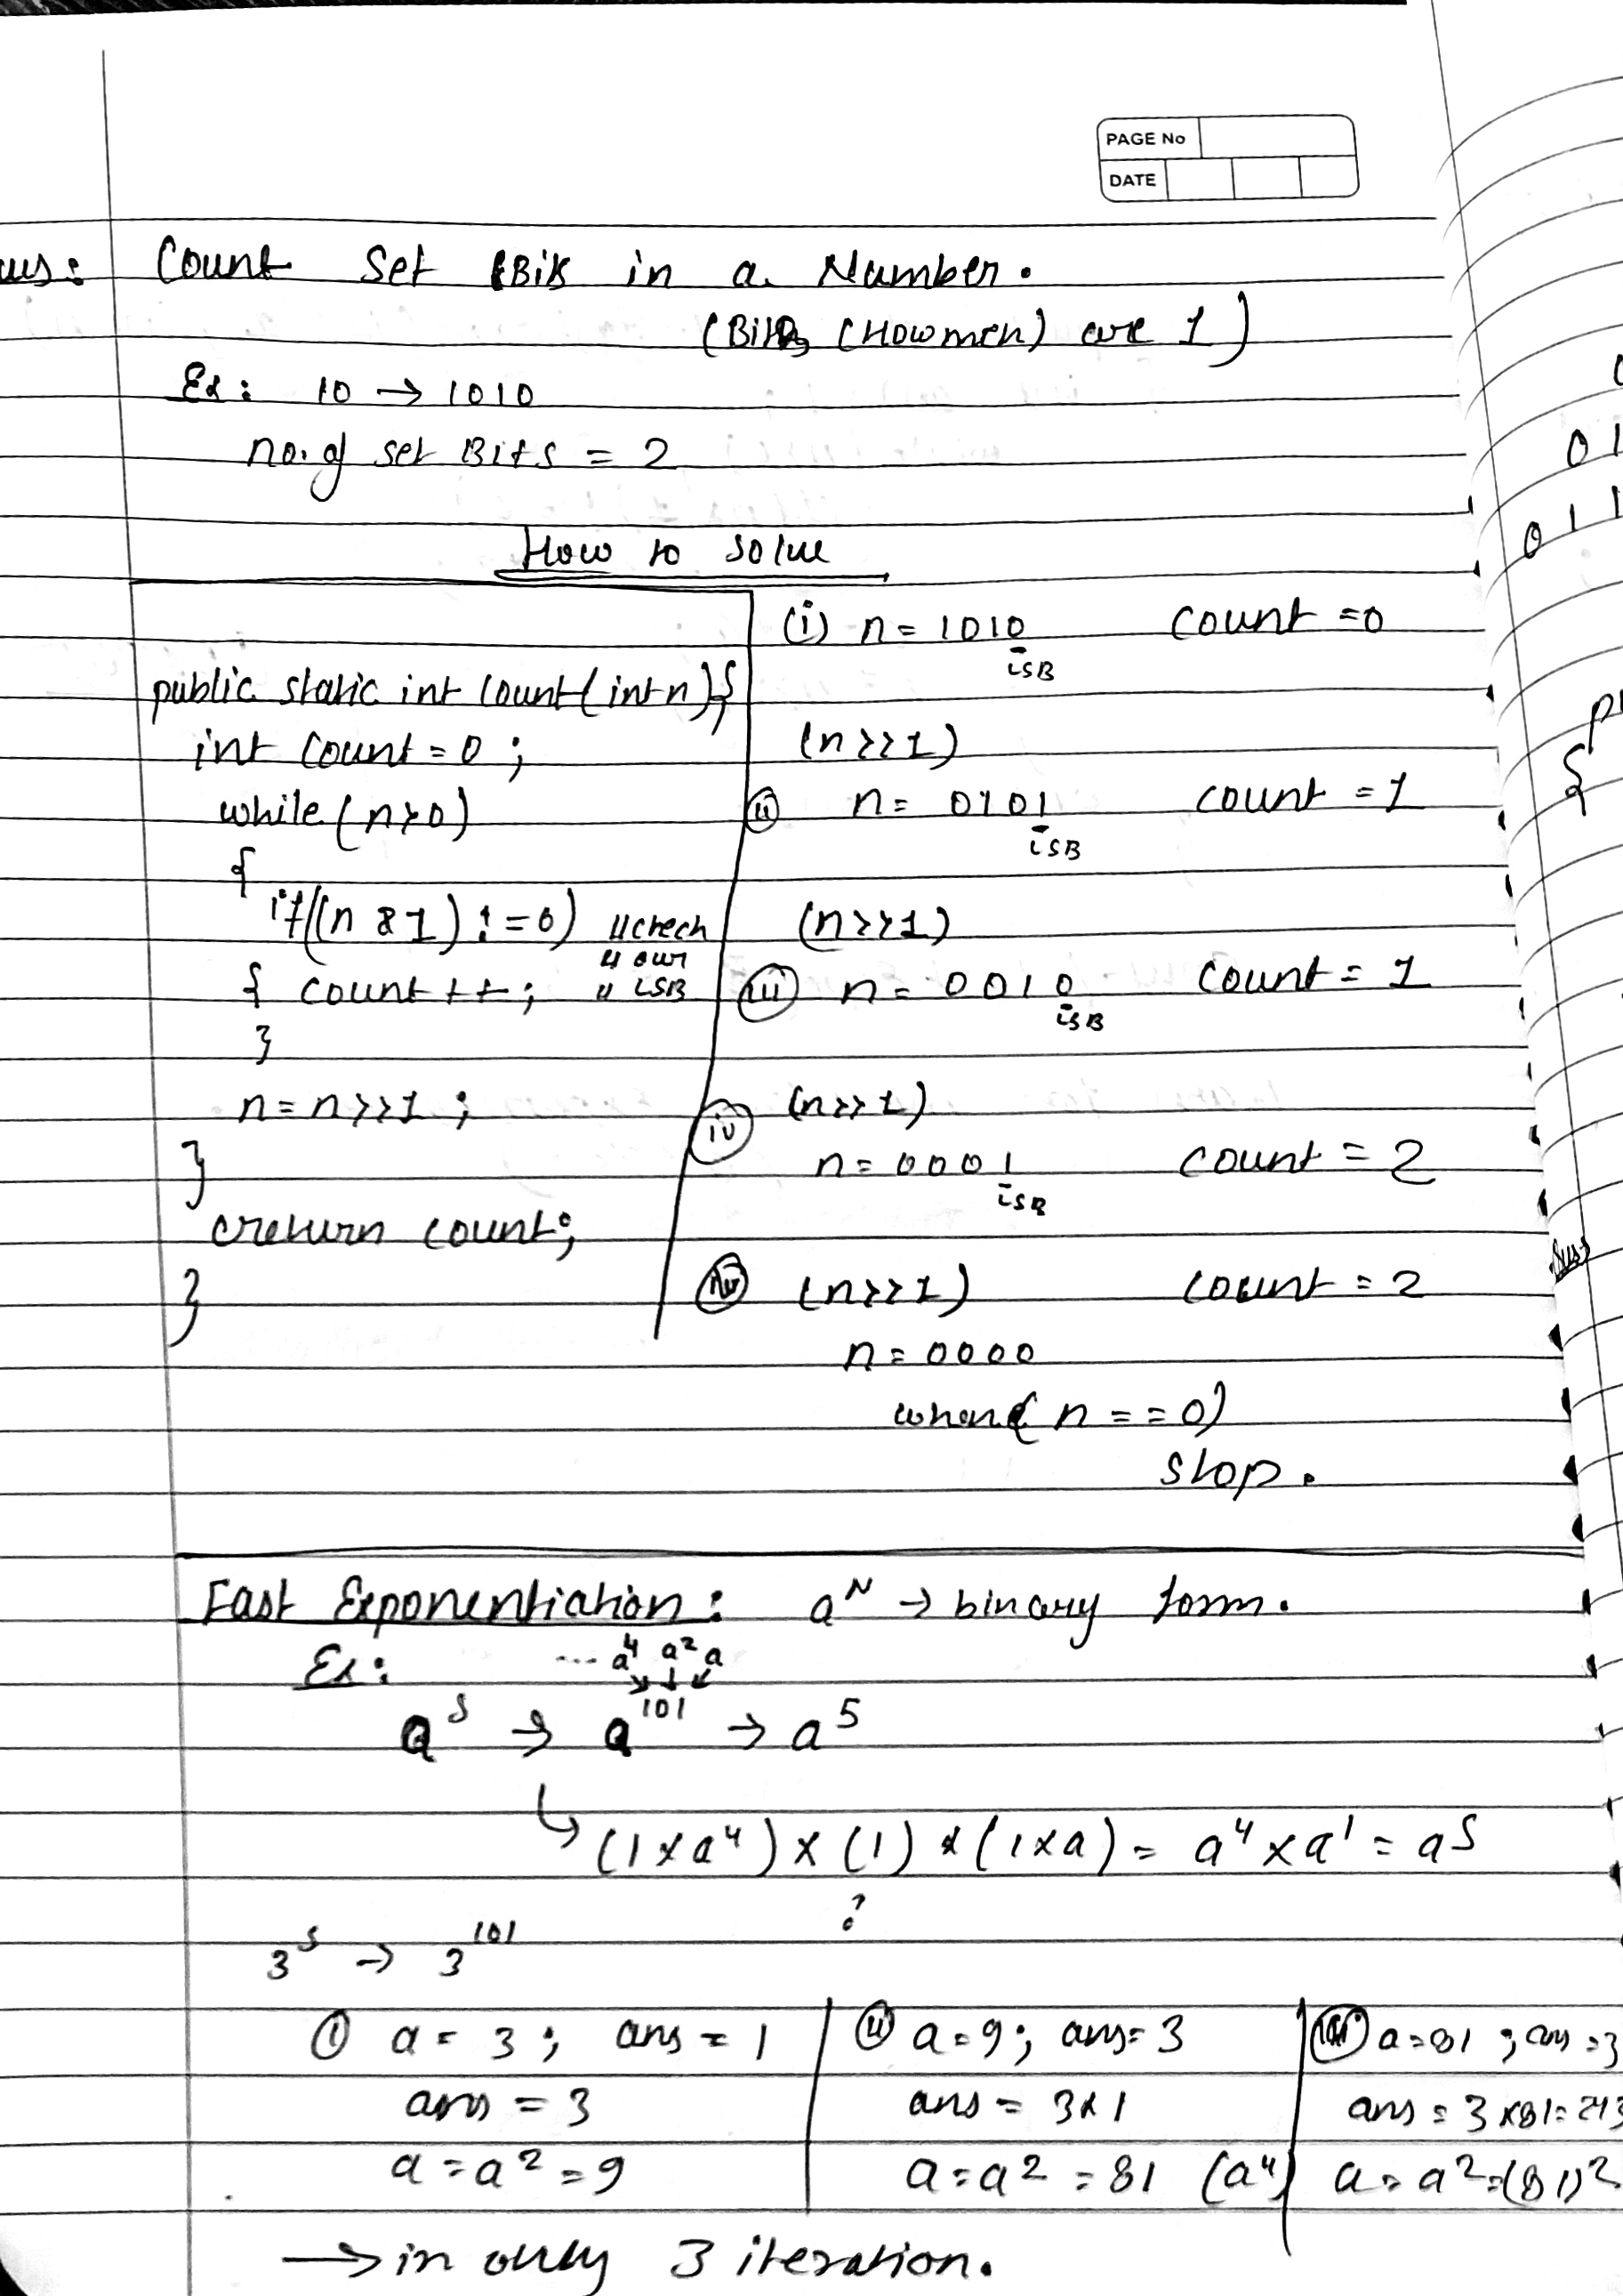 PAGE No
DATE
Ques: Count Set Bits in a Number.
(Bits (Howmch) are 1)
Ex: 10 → 1010
no. of set Bits = 2
How to solve
public static int count(int n){
int count = 0 ;
while (n>0)
{
if((n & 1) != 0) //check
// our
{ count ++ ; // LSB
}
n = n>>1 ;
}
return count;
}
(i) n = 1010 count = 0
LSB
(n>>1)
(ii) n = 0101 count = 1
LSB
(n>>1)
(iii) n = 0010 count = 1
LSB
(n>>1)
(iv) n = 0001 count = 2
LSB
(n>>1) count = 2
n = 0000
when( n == 0)
stop.
Fast Exponentiation: aᴺ → binary form.
Ex: ... a⁴ a² a
a⁵ → a¹⁰¹ → a⁵
↳ (1 x a⁴) x (1) x (1 x a) = a⁴ x a¹ = a⁵
?
3⁵ → 3¹⁰¹
(i) a = 3 ; ans = 1
ans = 3
a = a² = 9
(ii) a = 9 ; ans = 3
ans = 3x1
a = a² = 81 (a⁴)
(iii) a = 81 ; ans = 3
ans = 3 x 81 = 243
a = a² = (81)²
→ in only 3 iteration.
0 1
0 1 1
{